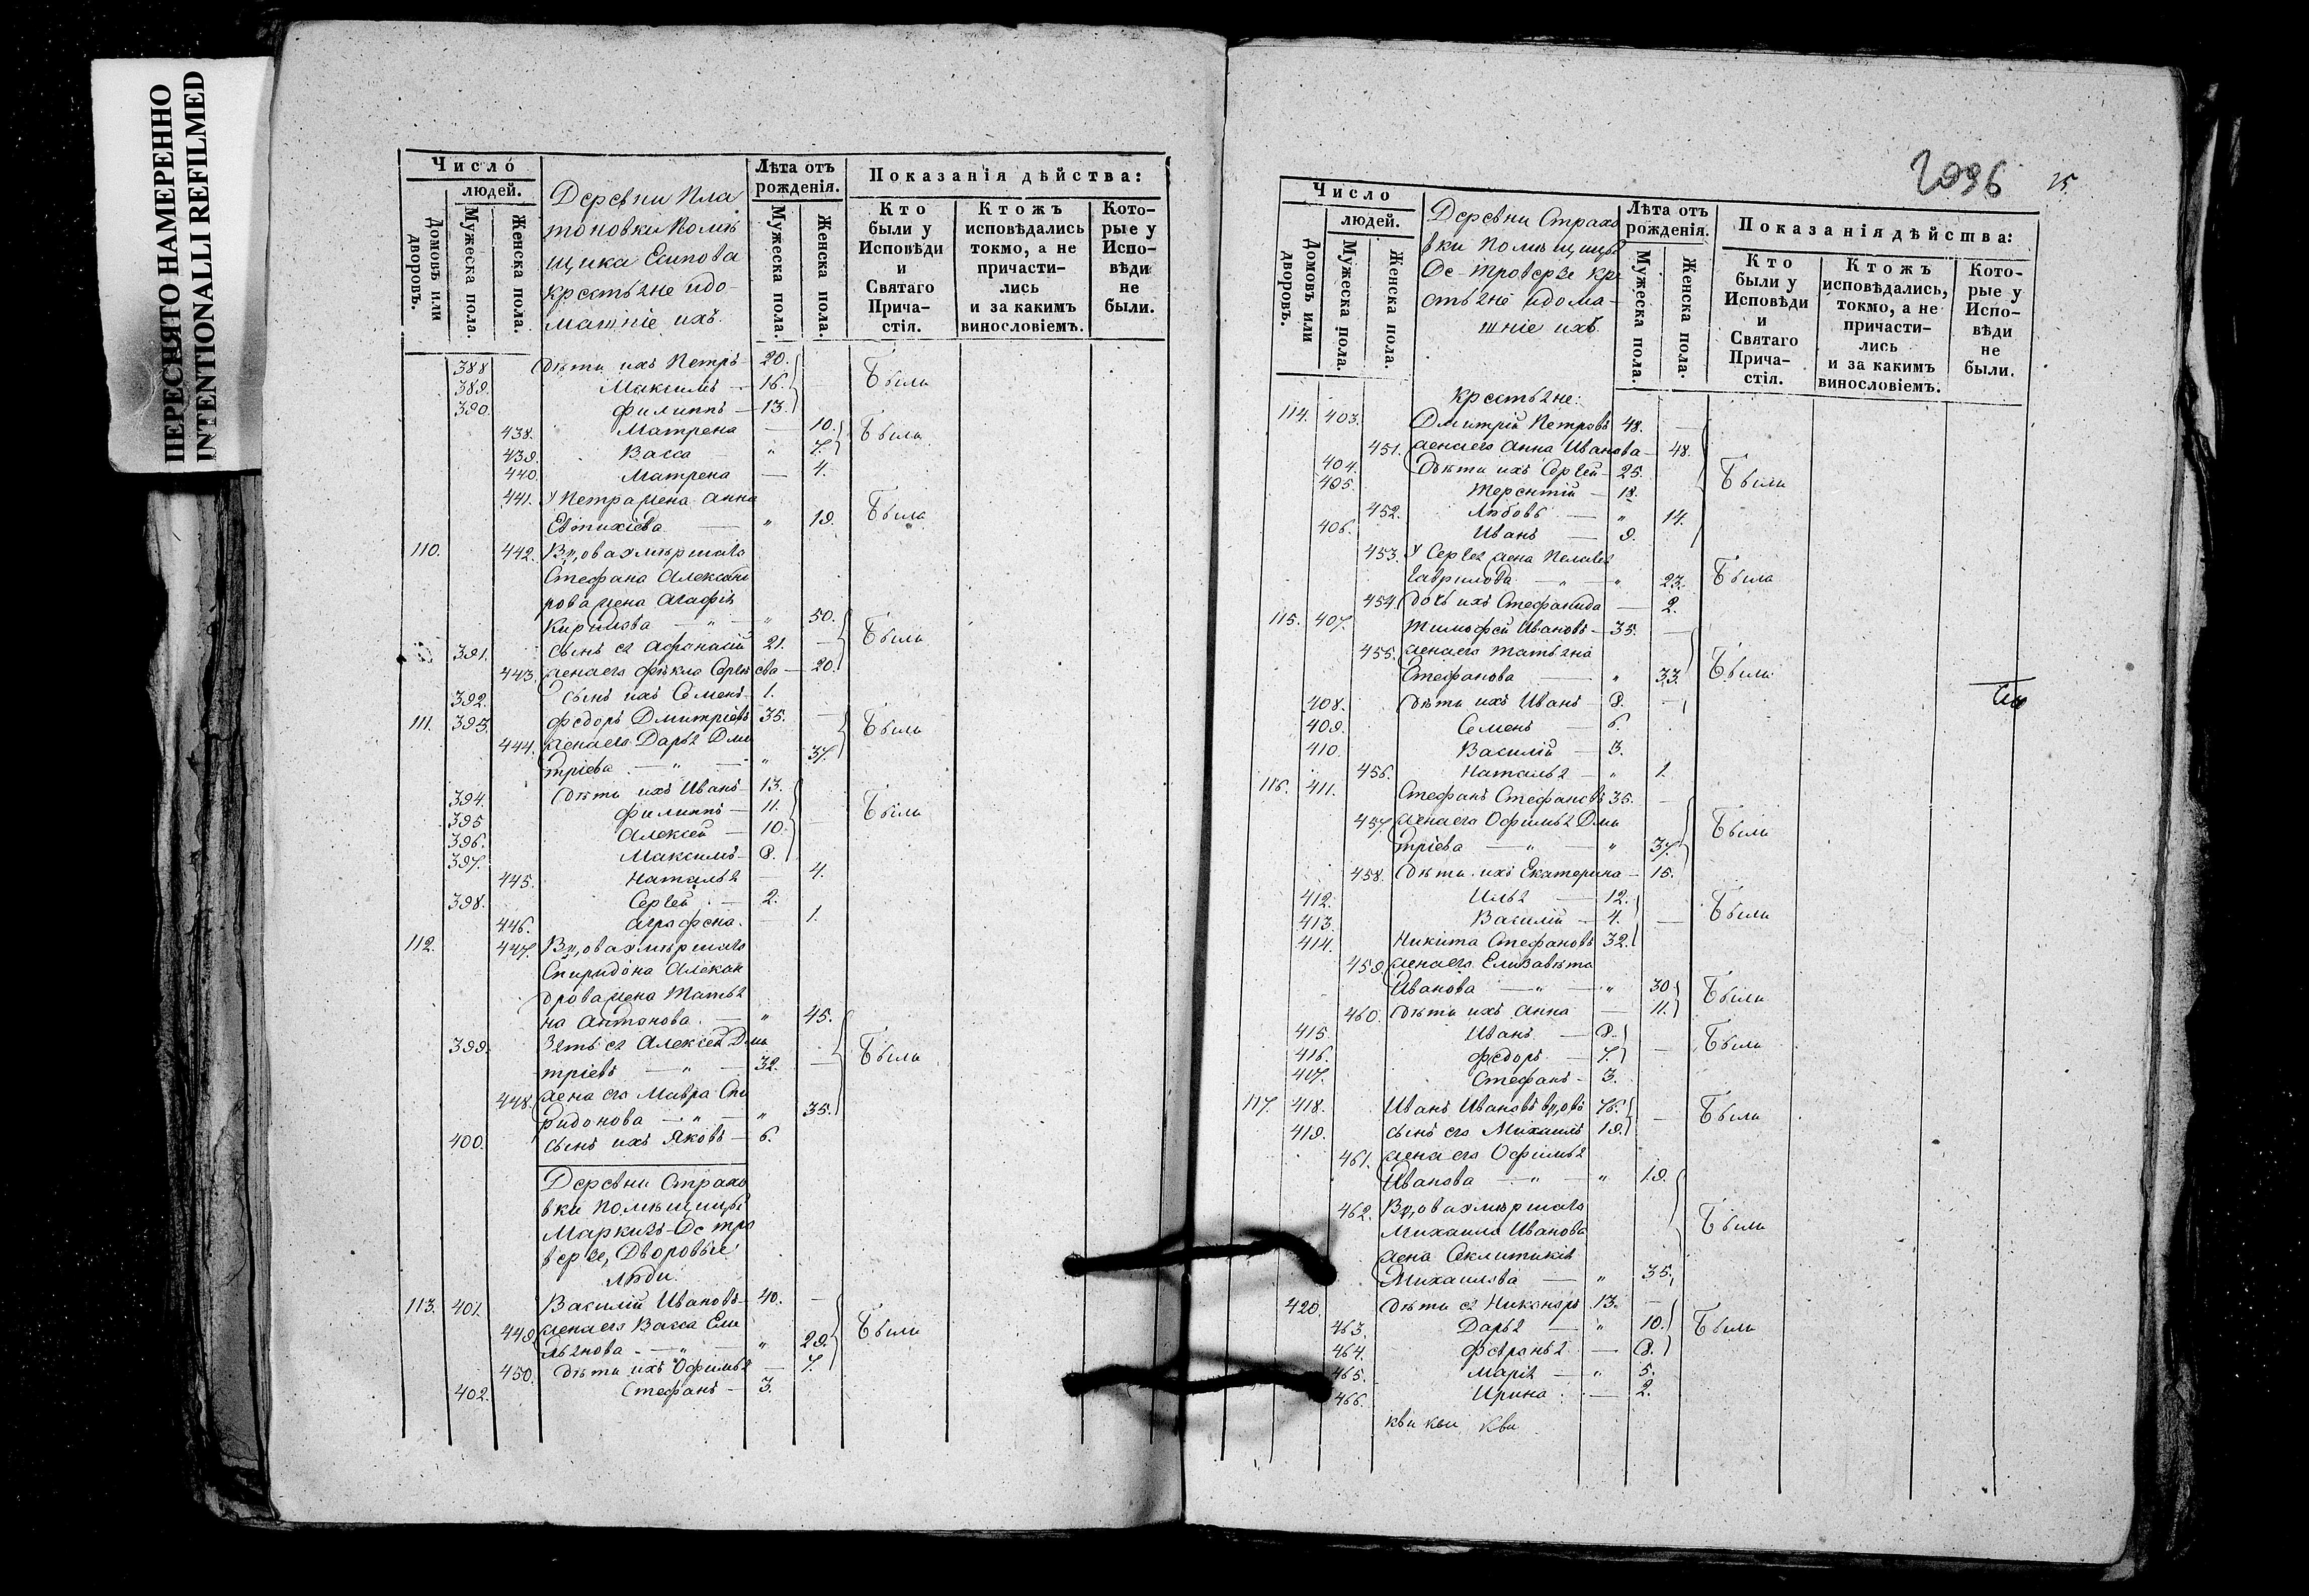 ПЕРЕСНЯТО НАМЕРЕННО
INTENTIONALLI REFILMED
Число
людей.
Домовъ или дворовъ.
Мужеска пола.
Женска пола.
Деревни Пла
тоновки Помѣ
щика Есипова
крестьяне идо-
машніе ихъ.
Лѣта отъ рожденія.
Мужеска пола.
Женска пола.
Показанія дѣйства:
Кто были у Исповѣди и Святаго Прича- стія.
Ктожъ исповѣдались токмо, а не причасти- лись и за какимъ винословіемъ.
Кото- рые у Испо- вѣди не были.
388 дѣти ихъ Петръ — 20.
389. Максимъ — 16. Были
390. Филиппъ — 13.
438. Матрена — 10. Были
439. Васса " 7.
440. Матрена — 4.
441. У Петра жена Анна
Евтихіева — " 19. Была
110. 442. Вдова умершаго
Стефана Александ
рова жена Агафія
Кирилова — " — " 50.
391. сынъ ея Афанасій 21. — Были
443. жена его Фекла Сергѣева — 20.
392. сынъ ихъ Семенъ 1.
111. 393. Федоръ Дмитріевъ 35. — Были
444. жена его Дарья Дми
тріева — " — " 37.
394. дѣти ихъ Иванъ — 13.
395 Филиппъ — 11. Были
396. Алексей — 10.
397. Максимъ — 8.
445. Наталья — 4.
398. Сергей — 2.
446. Аграфена. — 1.
112. 447. Вдова умершаго
Спиридона Алексан
дрова жена Татья
на Антонова. — " 45.
399. Зять ея Алексей Дми
тріевъ — " — 32. — Были
448. жена его Мавра Спи
ридонова — " — " 35.
400. сынъ ихъ Яковъ — 6.
Деревни Страхо
вки помѣщицы
Маркизъ-Де тра
версе, Дворовые
люди.
113. 401. Василій Ивановъ — 40. —
449. жена его Васса Еми
льянова — " — " 29. Были
450. дѣти ихъ Офимья — 7.
402. Стефанъ — 3.
2096
25.
Число
людей.
Домовъ или дворовъ.
Мужеска пола.
Женска пола.
Деревни Страхо
вки помѣщицы
Де-Троверзе кре
стьяне идома-
шніе ихъ.
Лѣта отъ рожденія.
Мужеска пола.
Женска пола.
Показанія дѣйства:
Кто были у Исповѣди и Святаго Прича- стія.
Ктожъ исповѣдались, токмо, а не причасти- лись и за какимъ винословіемъ.
Кото- рые у Испо- вѣди не были.
крестьяне:
114. 403. Дмитрій Петровъ 48. —
451. жена его Анна Иванова — 48.
404. дѣти ихъ Сергей — 25. Были
405. Терентій — 18.
452. Любовь — " 14.
406. Иванъ — 9.
453. У Сергея жена Пелагея
Гаврилова — " — " 23. Была
454. дочь ихъ Стефанида — 2.
115. 407. Тимофей Ивановъ — 35. —
455. жена его Татьяна
Стефанова — " 33. Были
408. дѣти ихъ Иванъ — 8. —
409. Семенъ — 6.
410. Василій — 3.
456. Наталья — " 1.
116. 411. Стефанъ Стефановъ 35. —
457. жена его Офимья Дми
тріева — " — " 37. Были
458. дѣти ихъ Екатерина — 15.
412. Илья — 12.
413. Василій — 4. — Были
414. Никита Стефановъ 32.
459. жена его Елизавета
Иванова — " — " 30. Были
460. дѣти ихъ Анна — 11.
415. Иванъ — 8. Были
416. Федоръ — 7. —
417. Стефанъ — 3.
117. 418. Иванъ Ивановъ вдовъ 76. — Были
419. сынъ его Михаилъ 19.
461. жена его Офимья
Иванова — " — " 19.
462. Вдова умершаго
Михаила Иванова Были
жена Секлитикія
Михаилова — " 35.
420. дѣти ея Никаноръ 13. —
463. Дарья — " 10. Были
464. Февронья — 8.
465. Марія — " 5.
466. Ирина — 2.
кви кви кви